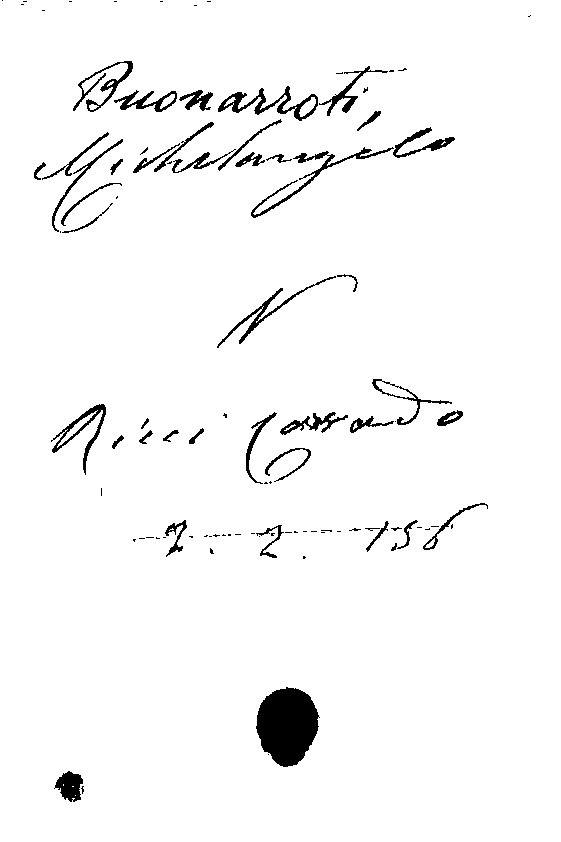 Buonarroti,
Michelangelo
N
Ricci Corrado
2. 2. 156